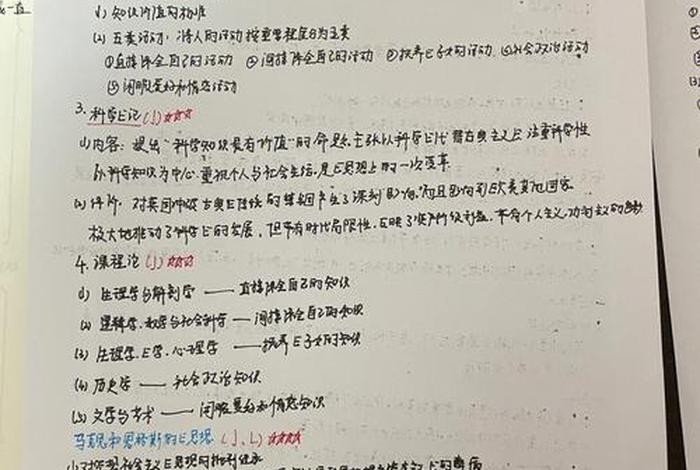 (1) 知识价值的标准
(2) 五类活动：将人的活动按重要程度分为五类
①直接保全自己的活动 ②间接保全自己的活动 ③抚养E子女的活动 ④社会政治活动
⑤闲暇爱好和情感活动
3. 科学E论(J)☆☆☆
(1) 内容：提出“科学知识最有价值”的命题，主张以科学E代替古典主义E，注重科学性
以科学知识为中心，重视个人与社会生活，是E思想上的一次变革
(2) 评价：对英国中的古典E传统的 产生了深刻影响，而且影响到欧美其他国家
极大地推动了科学E的发展，但带有时代局限性，反映了资产阶级利益，带有个人主义，功利主义的色彩
4. 课程论(J)☆☆☆
(1) 生理学与解剖学 —— 直接保全自己的知识
(2) 逻辑学、数学与社会科学 — 间接保全自己的知识
(3) 生理学、E学、心理学 —— 抚养E子女的知识
(4) 历史学 —— 社会政治知识
(5) 文学与艺术 —— 闲暇爱好和情感知识
马克思和恩格斯的E思想 (J, L) ☆☆☆☆
(1) 对空想社会主义E思想的批判继承